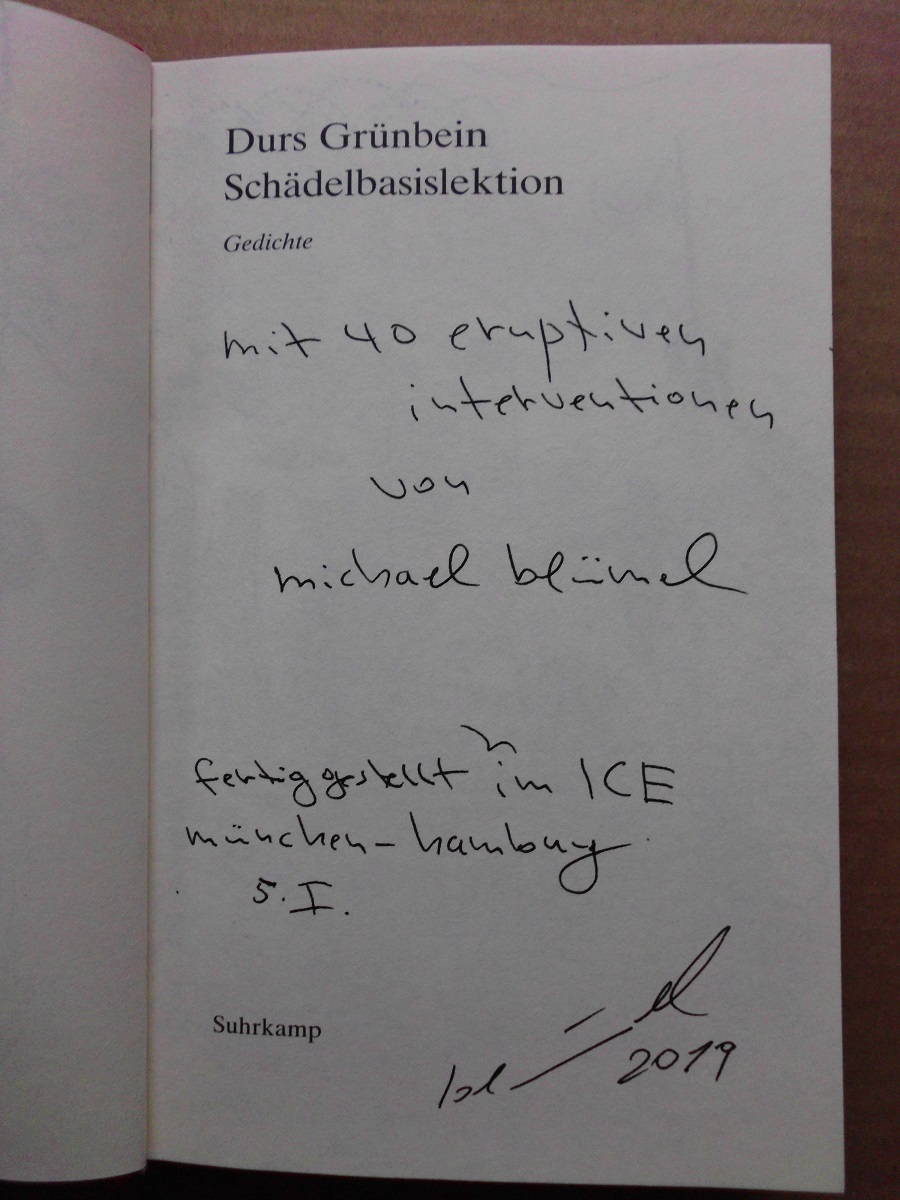 Durs Grünbein
Schädelbasislektion
Gedichte
mit 40 eruptiven
interventionen
von
michael blümel
fertiggestellt im ICE
münchen – hamburg
5. I.
Suhrkamp
bl—el
2019